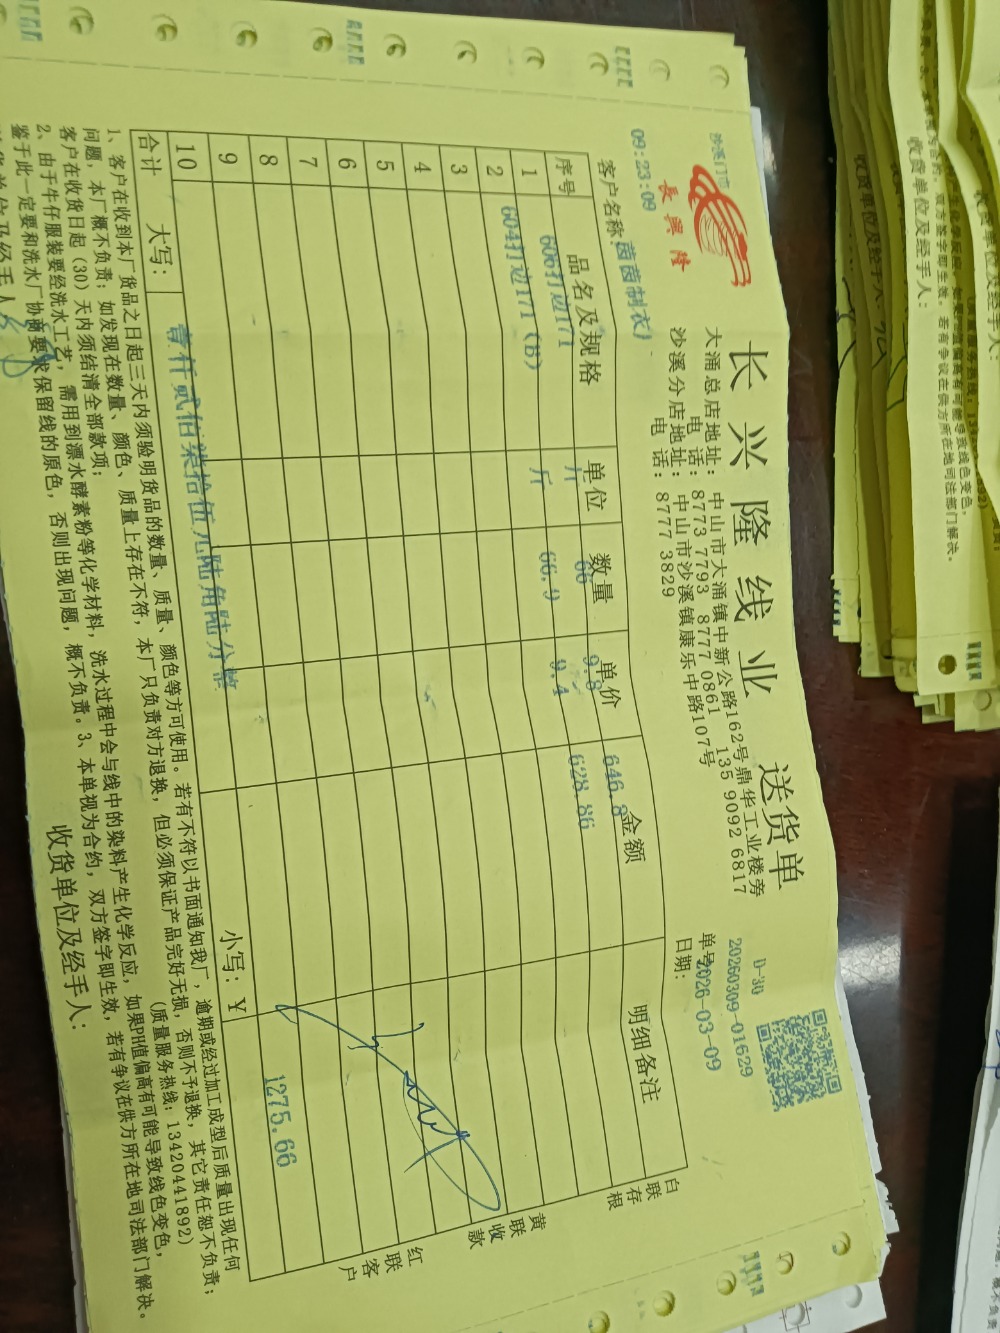 长兴隆线业 送货单
沙溪门市
長興隆
09:23:09
大涌总店地址：中山市大涌镇中新公路162号鼎华工业楼旁
电话：8773 7793 8777 0861 135 9092 6817
沙溪分店地址：中山市沙溪镇康乐中路107号
电话：8777 3829
D-30
20260309-01629
单号
日期：2026-03-09
客户名称：茵茵制衣厂
序号 品名及规格 单位 数量 单价 金额 明细备注
1 606打边171 斤 66 9.8 646.8
2 604打边171（B） 斤 66.9 9.4 628.86
3
4
5
6
7
8
9
10
合计 大写：壹仟贰佰柒拾伍元陆角陆分整 小写：¥ 1275.66
白联存根
黄联收款
红联客户
1、客户在收到本厂货品之日起三天内须验明货品的数量、质量、颜色等方可使用。若有不符以书面通知我厂，逾期或经过加工成型后质量出现任何
问题，本厂概不负责；如发现在数量、颜色、质量上存在不符，本厂只负责对方退换，但必须保证产品完好无损，否则不予退换，其它责任恕不负责；
客户在收货日起（30）天内须结清全部款项； （质量服务热线：13420441892）
2、由于牛仔服装要经洗水工艺，需用到漂水酵素粉等化学材料，洗水过程中会与线中的染料产生化学反应，如果PH值偏高有可能导致线色变色，
鉴于此一定要和洗水厂协商要求保留线的原色，否则出现问题，概不负责。3、本单视为合约，双方签字即生效，若有争议在供方所在地司法部门解决。
收货单位及经手人：
收货单位及经手人：
收货单位及经手人：